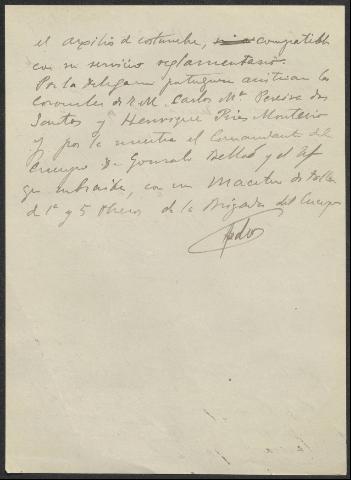 el auxilio de costumbre, compatible
con su servicio reglamentario.
Por la Delegon portuguesa asistirán los
Coroneles de E. M. Carlos Mª Pereira dos
Santos y Henrique Pires Monteiro
y por la nuestra el Comandante del
Cuerpo Dn Gonzalo y el Jf
que subscribe, con un Maestro de Taller
de 1ª y 5 Obreros de la Brigada del Cuerpo